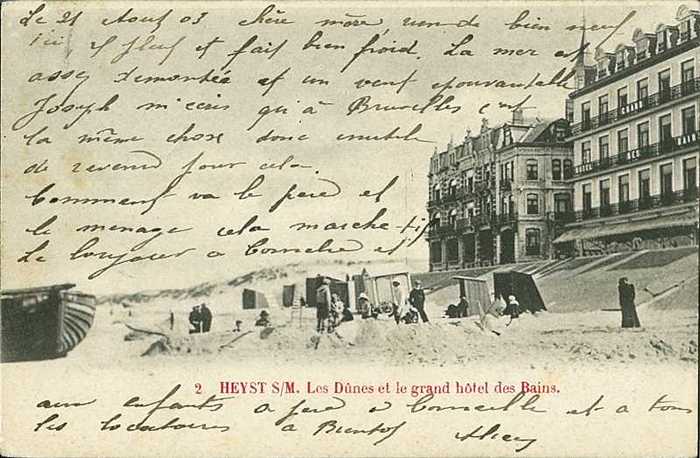 Le 21 Aout 03 Chère mère rien de bien neuf
Ici il pleut et fait bien froid. La mer est
assez demontée et un vent epouvantable
Joseph m'ecris qu'à Bruxelles c'est
la même chose donc inutile
de revenir pour cela.
Comment va le père et
le menage cela marche-t-il
Le bonjour à Corneille et
GRAND
HOTEL DES BAINS
2 HEYST S/M. Les Dûnes et le grand hôtel des Bains.
aux enfants a père a Corneille et a tous
les locataires a Bientot